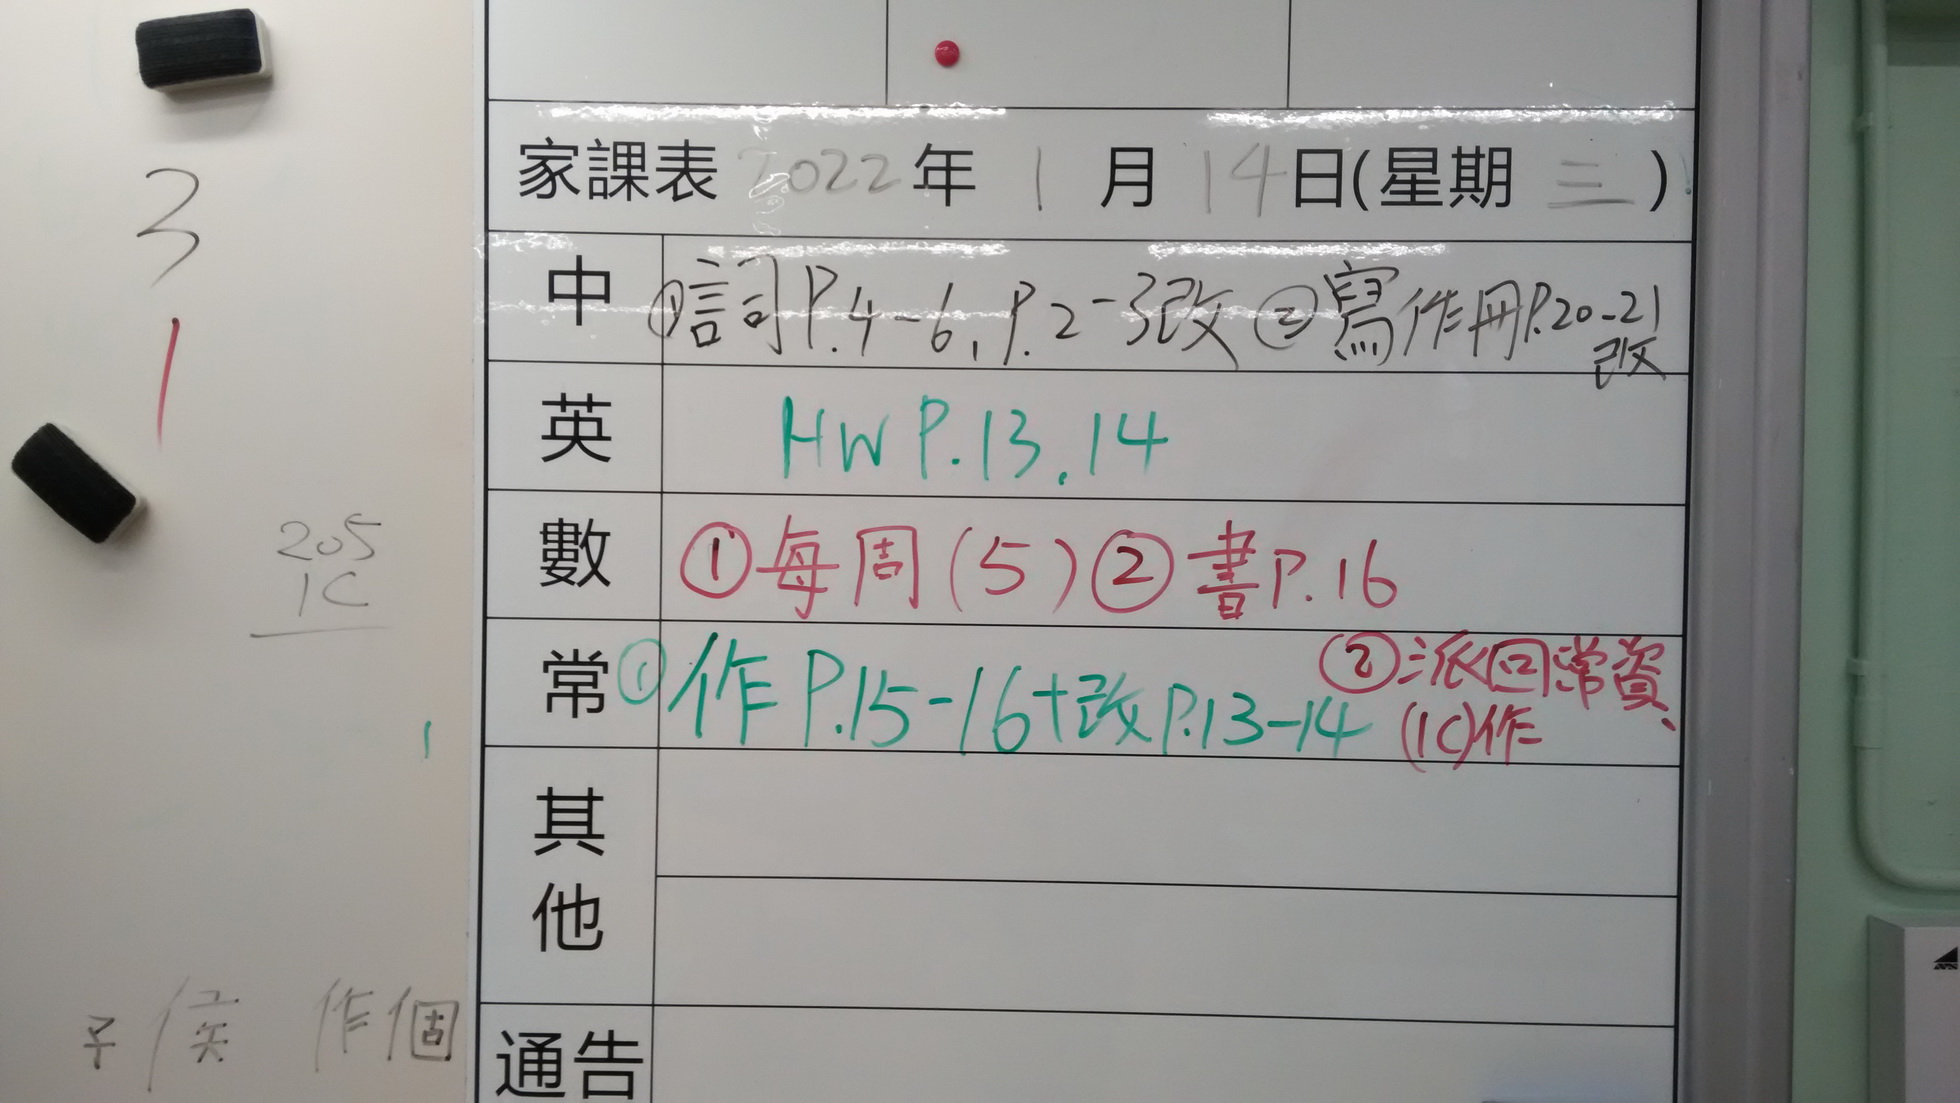 3
1
205
1C
子 候 作個
家課表 2022年 1月 14日(星期三)
中 ①詞P.4-6,P.2-3改 ②寫作冊P.20-21
改
英 HW P.13,14
數 ①每周(5) ②書P.16
常 ①作P.15-16+改P.13-14 ②派回常資、
(1C)作
其他
通告